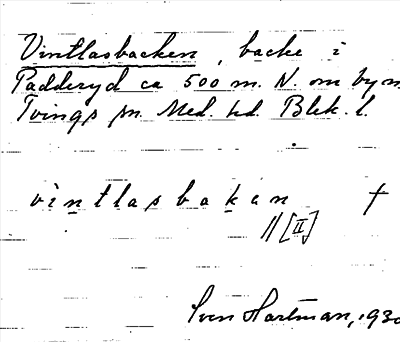 Vintlasbacken, backe i
Padderyd ca 500 m. N. om byn
Tvings sn. Med. hd. Blek. l.
vintlasbakan †
// [II]
Sven Hartman, 1930